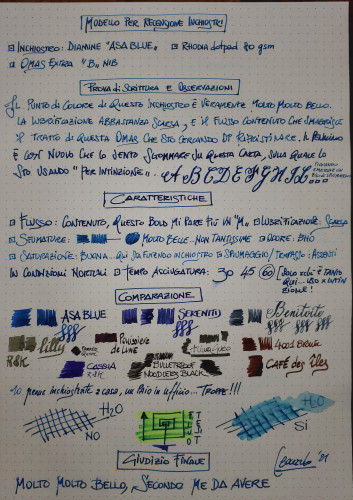 MODELLO PER RECENSIONE INCHIOSTRI
INCHIOSTRO: DIAMINE "ASA BLUE"
RHODIA dotpad 80 gsm
OMAS EXTRA "B" NIB
PROVA DI SCRITTURA E OSSERVAZIONI
IL PUNTO DI COLORE DI QUESTO INCHIOSTRO È VERAMENTE MOLTO MOLTO BELLO.
LA LUBRIFICAZIONE ABBASTANZA SCARSA, E IL FLUSSO CONTENUTO CHE SMAGRISCE
IL TRATTO DI QUESTA OMAS CHE STO CERCANDO DI RIPRISTINARE. IL PENNINO
È COSÌ NUOVO CHE LO SENTO SU QUESTA CARTA, SULLA QUALE LO
STO USANDO "PER INTINZIONE".
A B C D E F G H I L
CARATTERISTICHE
FLUSSO: CONTENUTO, QUESTO BOLD MI PARE PIÙ UN "M"
LUBRIFICAZIONE: SCARSA
SFUMATURE:
MOLTO BELLE... NON TANTISSIME
ODORE: BHO
SATURAZIONE: BUONA... QUI STA FINENDO INCHIOSTRO
SPIUMAGGIO/TRAPASSO: ASSENTI
IN CONDIZIONI NORMALI
TEMPO ASCIUGATURA: 30 45 60
SOLO CHE È TANTO
QUI... USO X INTIN
ZIONE!
COMPARAZIONE
ASA BLUE
SERENITY
Benitoite
Lilly
R&K
POUSSIÈRE
DE LUNE
4001 BROWN
CASSIA
R&K
BULLETPROOF
NOODLER'S BLACK
CAFÉ des ÎLES
10 penne inchiostrate a casa, un paio in ufficio... TROPPE!!!
H2O
NO
H2O
SI
GIUDIZIO FINALE
MOLTO MOLTO BELLO, SECONDO ME DA AVERE